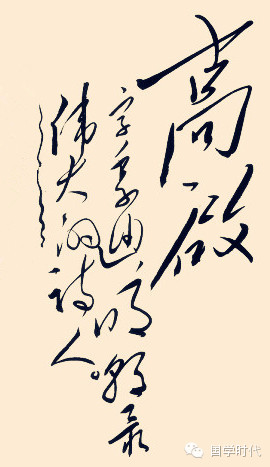 高啟
字季迪,明朝最
伟大的诗人。
国学时代